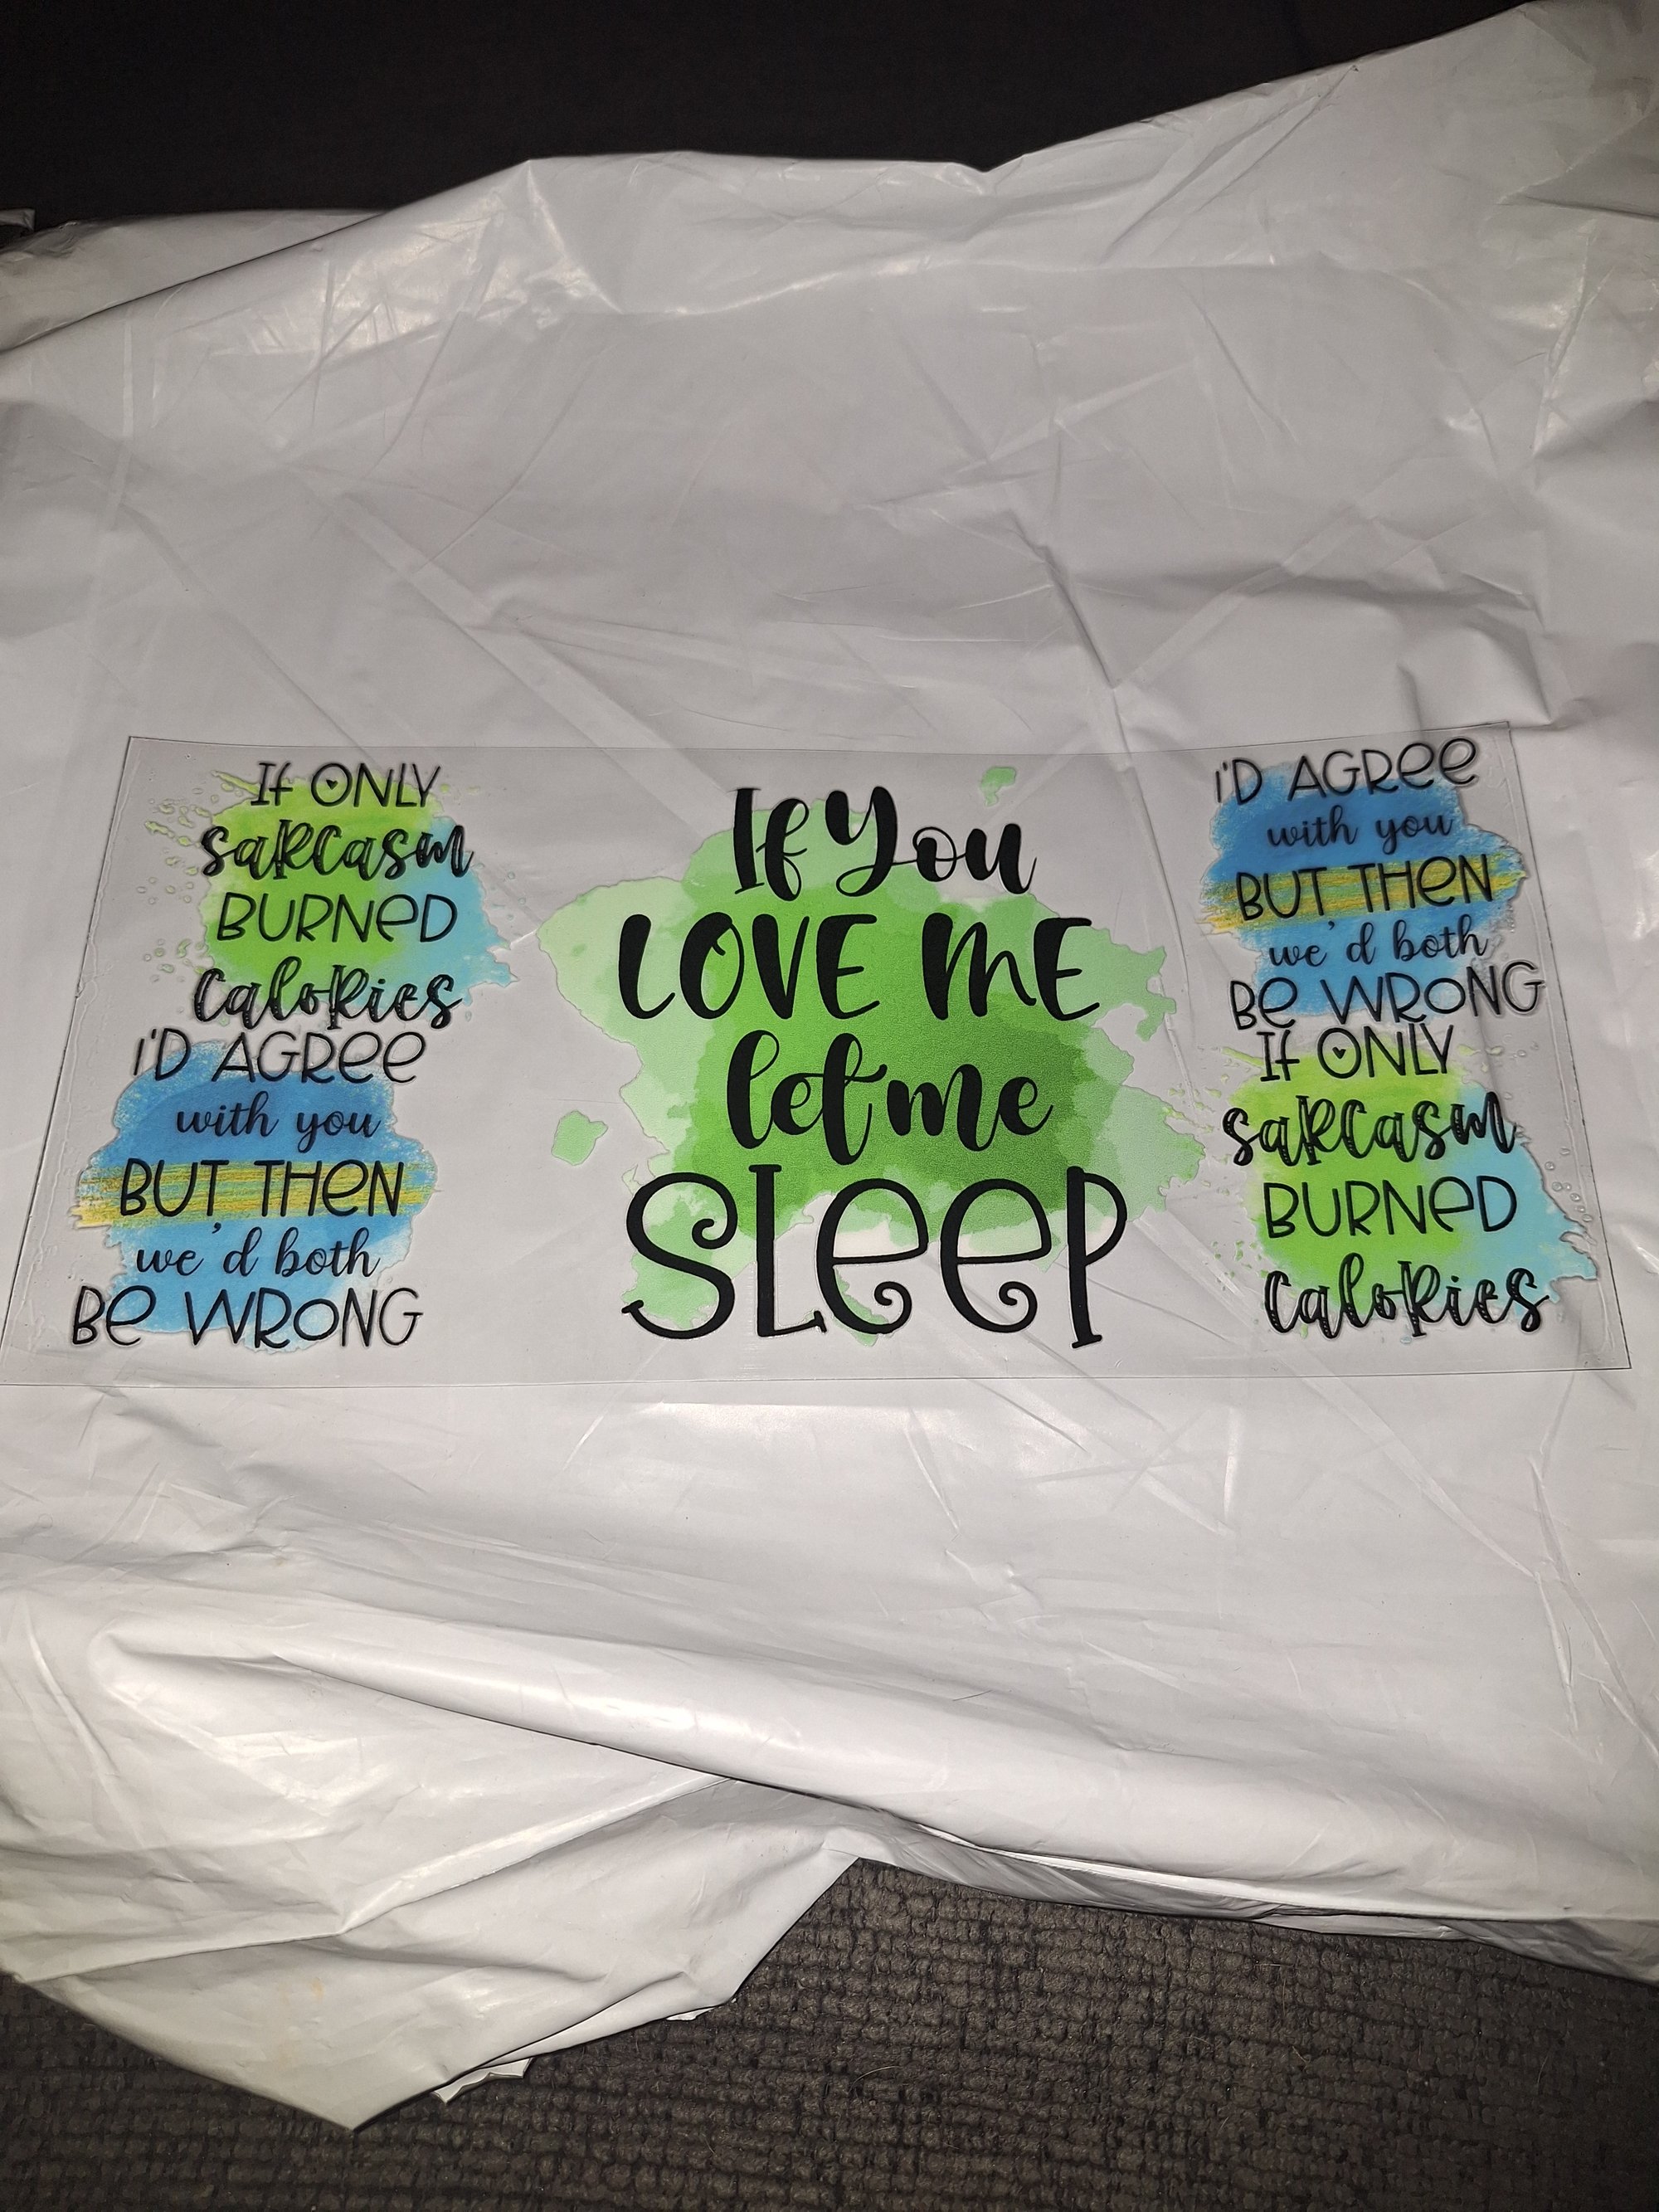 If ONLY
saRCasm
BURNeD
CaloRies
I'D AGRee
with you
BUT THeN
we'd both
Be WRONG
If You
LOVE ME
let me
SLeeP
I'D AGRee
with you
BUT THeN
we'd both
Be WRONG
If ONLY
saRCasm
BURNeD
CaloRies